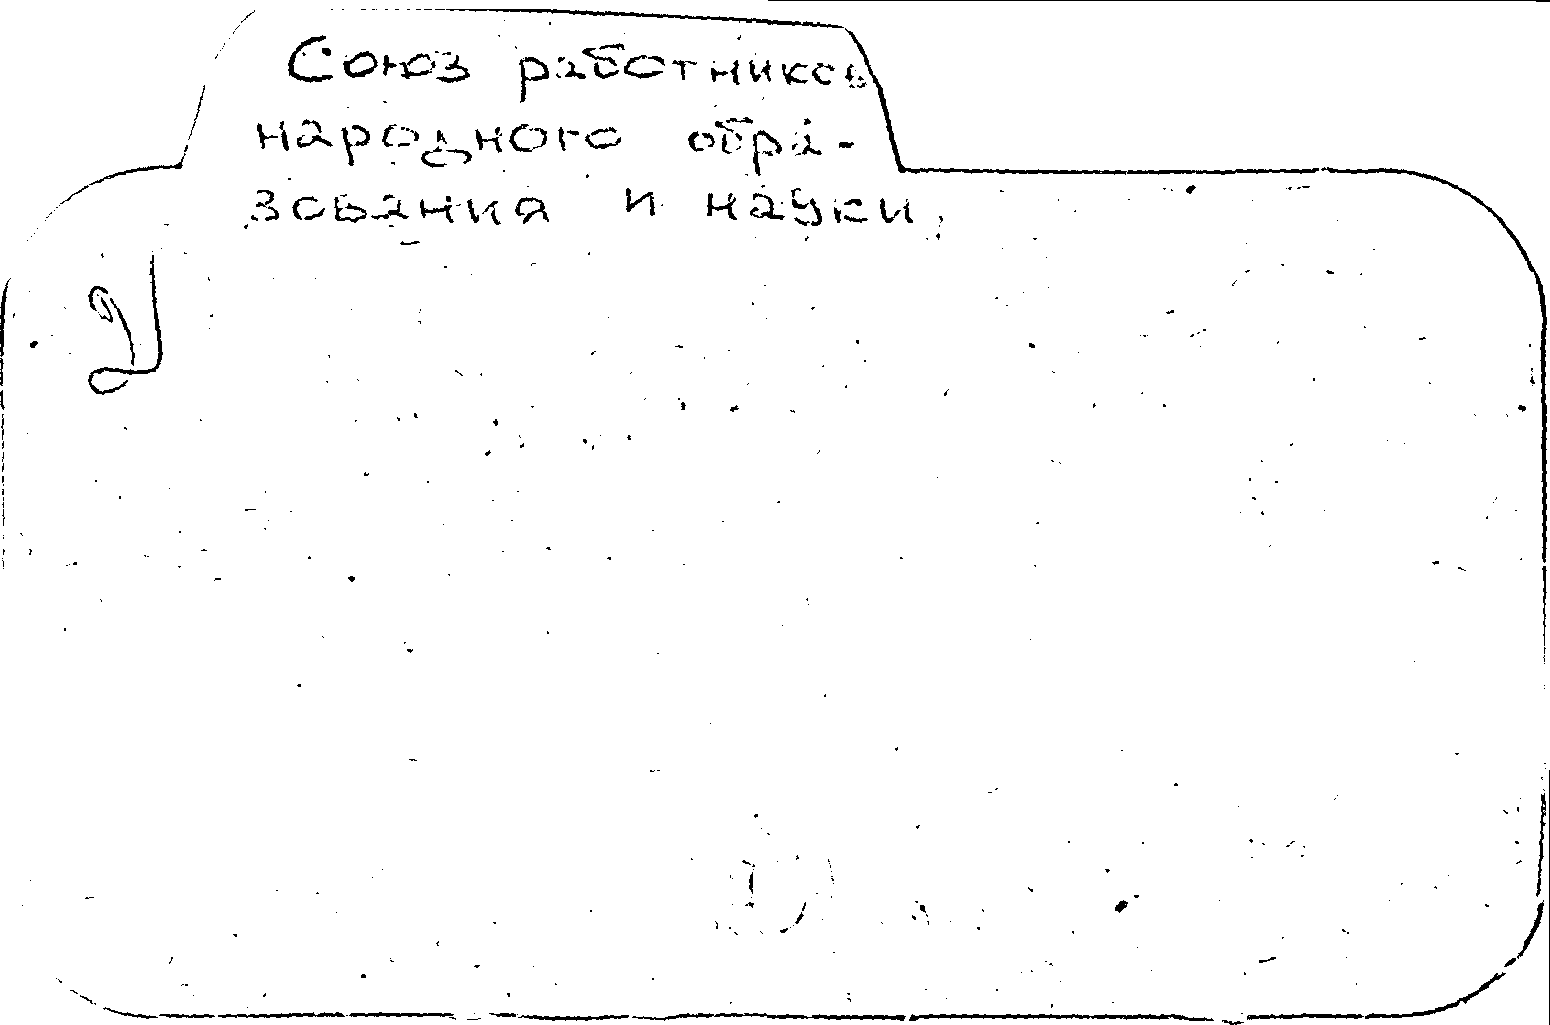 Союз работников
народного обра-
зования и науки.